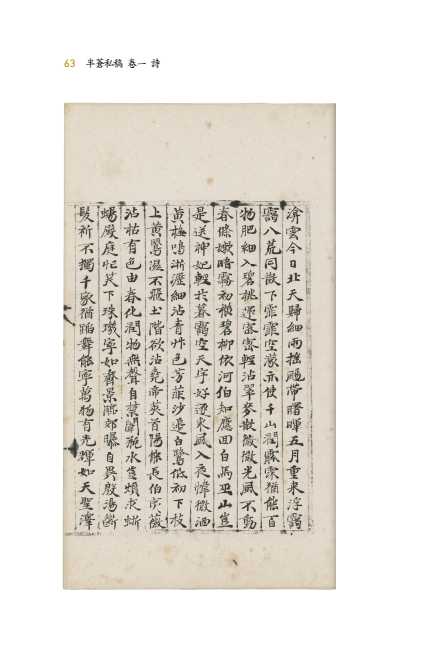 63 半蒼私稿 卷一 詩
濟雲今日北天歸細雨搖颺帶曙暉五月重來浮靄
靄八荒同散下霏霏空濛亦使千山潤霡霂猶能百
物肥細入碧桃運密密輕沾翠麥散微微光風不動
春條嫩暗霧初攙碧柳依河伯知應回白馬巫山豈
是送神妃輕於暮靄空天宇好逐東風入夜幃微洒
黃梅鳴淅瀝細沾青艸色芳菲沙邊白鷺低初下枝
上黃鸎濕不飛土階欲沾堯帝蓂首陽條長伯夷薇
沾枯有色由春化潤物無聲自葉開施水豈煩求蜥
蜴殿庭忙見下珠璣寧如齊景郊曝自異殷湯斷
髮祈不獨千家猶蹈舞能寧萬物有光輝如天聖澤